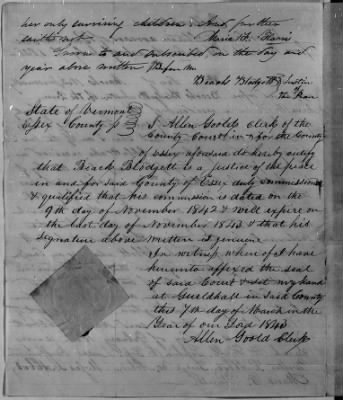 her only surviving children: And further
saith not. Maria H. Harris
Sworn to and subscribed, on the day and
year above written Before me
Beach Blodgett Justice
the Peace
State of Vermont
Essex County ss
I Allen Goold Clerk of the
County Court in & for the County
of Essex aforesaid do hereby certify
that Beach Blodgett is a justice of the peace
in and for said County of Essex duly commissioned
& qualified that his commission is dated on the
9th day of November 1842 & will expire on
the last day of November 1843 & that his
signature above written is genuine
In witness whereof I have
hereunto affixed the seal
of said Court & set my hand
at Guildhall in said County
this 7th day of March in the
Year of our Lord 1843
Allen Goold Clerk